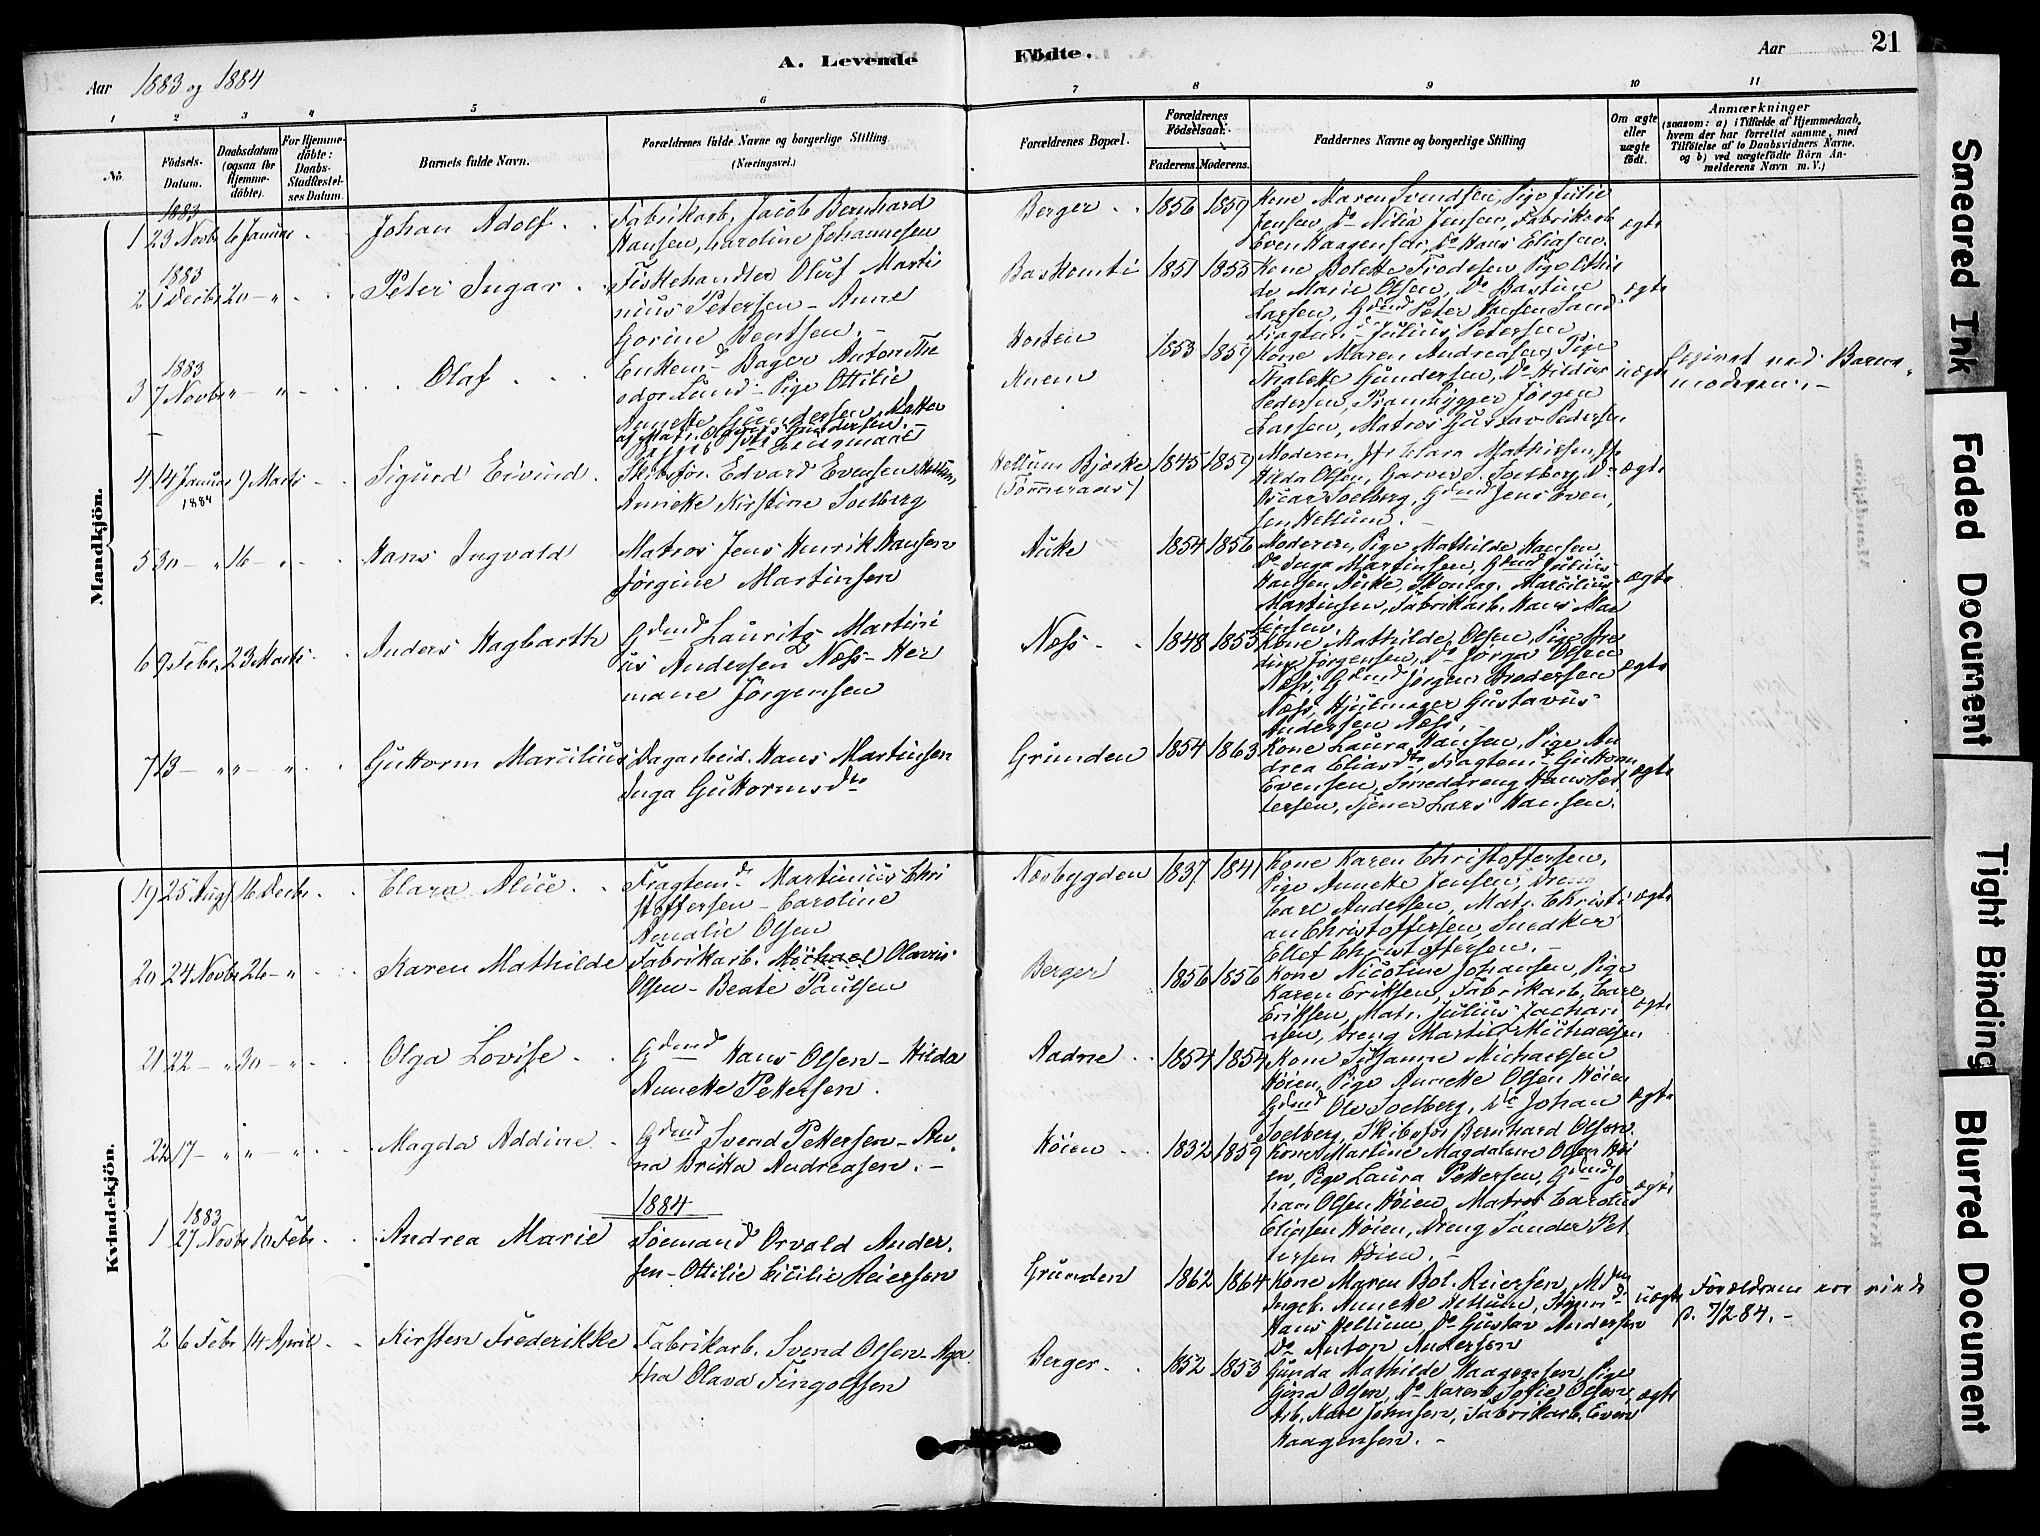 A. Levende
Fødte.
Aar
21
Aar 1883 og 1884
1
2
3
4
5
6
7
8
9
10
11
No.
Födsels-
Datum.
Daabsdatum
(ogsaa for
Hjemme-
döbte).
For Hjemme-
döbte:
Daabs-
Stadfæstel-
ses Datum.
Barnets fulde Navn.
Forældrenes fulde Navne og borgerlige Stilling
(Næringsvei.)
Forældrenes Bopæl.
Forældrenes
Födselsaar.
Faderens.
Moderens.
Faddernes Navne og borgerlige Stilling
Om ægte
eller
uægte
født.
Anmærkninger
(saasom: a) i Tilfælde af Hjemmedaab,
hvem der har forrettet samme, med
Tilföielse af to Daabsvidners Navne.
og b) ved uægtefödte Börn An-
melderens Navn m. V.)
Mandkjön.
1883
1 23 Novbr 6 Januar
Johan Adolf
Fabrikarb. Jacob Bernhard
Hansen, Caroline Johannesen
Berger
1856 1859
Kone Maren Svendsen, Pige Julie
Jensen, Do Nilia Jensen, Fabrikarb
Even Haagensen, Do Hans Eliasen.
ægte
1883
2 1 Decbr 20 - "
Peter Ingar
Fiskehandler Oluf Marti
nius Petersen - Anne
Gorine Bentsen. -
1851 1855
Kone Bolette Frodesen, Pige Othi
de Marie Olsen, Do Bastine
Larsen, Gdmd Peter Hansen Sand
Fragtemd Julius Petersen
ægte
1883
3 7 Novbr " - "
Olaf
Enkemd Bager Anton The
odor Lund - Pige Ottilie
Annette Gundersen, Datter
Horten
Knem
1853 1859
Kone Maren Andreasen, Pige
Thalette Gundersen, Do Hildur
Pedersen, Prambygger Jörgen
Larsen, Matros Gustav Pedersen
uægte
Begivet ved Barne-
moderen. -
4 14 Januar 9 Marts
1884
Sigurd Eivind.
Skibsför. Edvard Evensen Hellum,
Anneke Kirstine Soelberg
Hellum Bjerke
(Tömmeraas)
1845 1859
Moderen, Jfr Clara Mathisen, Jfr
Hilda Olsen, Garver S. Soelberg, Do
Oscar Soelberg, Gdmd Jens Even
sen Hellum. -
ægte
5 30 - " 16 - "
Hans Ingvald
Matros Jens Henrik Hansen
Jörgine Martinsen
Auke
1854 1856
Moderen, Pige Mathilde Hansen,
Do Inga Martinsen, Gdmd Julius
Hansen Auke, Skomag. Marcilius
Martinsen, Fabrikarb. Hans Mar
tinsen.
ægte
6 9 Febr. 23 Marts
Anders Hagbarth
Gdmd Lauritz Martini
us Andersen Næss - Her
mane Jörgensen
Næss
1848 1855
Kone Mathilde Olsen, Pige An
dine Jörgensen, Do Jörga Olsen
Næss, Gdmd Jörgen Andersen
Næss, Hjulmager Gustavus
Andersen Næss,
ægte
7 13 - " - "
Guttorm Marcilius
Dagarbeid. Hans Martinsen
Inga Guttormsdtr
Grunden
1854 1863
Kone Laura Hansen, Pige An
drea Eliasdtr, Fragtemd Guttorm
Evensen, Smeddreng Hans Pet
tersen, Tjener Lars Hansen.
ægte
Kvindekjön.
19 25 Augst 16 Decbr
Clara Alice
Fragtemd Martinius Chri
stoffersen - Caroline
Amalie Olsen
Næsbygden
1837 1841
Kone Karen Christoffersen,
Pige Anneke Jensen, Dreng
Carl Andersen, Matr. Christi
an Christoffersen, Snedker
Ellef Christoffersen. -
ægte
20 24 Novbr 26 - "
Karen Mathilde
Fabrikarb. Michael Olavus
Olsen - Beate Paulsen
Berger
1856 1856
Kone Nicoline Johansen, Pige
Karen Eriksen, Fabrikarb. Carl
Eriksen, Matr. Julius Zachari
asen, Dreng Martin Michaelsen
ægte
21 22 - " 30 - "
Olga Lovise
Gdmd Hans Olsen - Hilda
Annette Pettersen.
Aadne
1854 1854
Kone Susanne Michaelsen
Höien, Pige Annette Olsen Höien
Gdmd Ole Soelberg, Do Johan
Soelberg, Skibsför Bernhard Olsen.
ægte
22 17 - " " - "
Magda Addine
Gdmd Svend Pettersen - An
na Britta Andreasen. -
Höien
1832 1859
Kone Martine Magdalene Olsen Höi
en, Pige Laura Pettersen, Gdmd Jo
han Olsen Höien, Matros Carolius
Eliasen Höien, Dreng Sander Pet
tersen Höien. -
ægte
1884
1883
1 27 Novbr 10 Febr
Andrea Marie
Sömand Orvald Ander
sen - Ottilie Cicilie Reiersen
Grunden
1862 1864
Kone Maren Bol. Reiersen, Mdm
Ingeb. Annette Hellum,
Hans Hellum, Do Gustav Andersen
Do Anton Andersen
uægte
Forældrene ere viede
p. 7/2 84. -
2 6 Febr 14 April
Kirsten Frederikke
Fabrikarb. Svend Olsen - Aga
tha Olava Fingolfsen
Berger
1852 1853
Gunda Mathilde Haagensen, Pige
Gina Olsen, Do Karen Sofie Olsen,
Arb. Karl Johnsen, Fabrikarb. Even
Haagensen. -
ægte
Smeared Ink
Faded Document
Tight Binding
Blurred Document